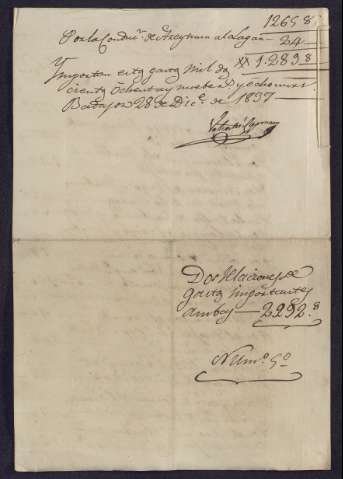 1265 8
Por la Conduc.n de a la 24
XX 1.289,, 8
Importan esta gasta mil dos
cientos ochenta y nuebe r.s y ocho mrs.
Badajoz 28 de Dic.e de 1837
Dos Relaciones de
gastos importantes
ambas 2292.8
Num.o 5.o